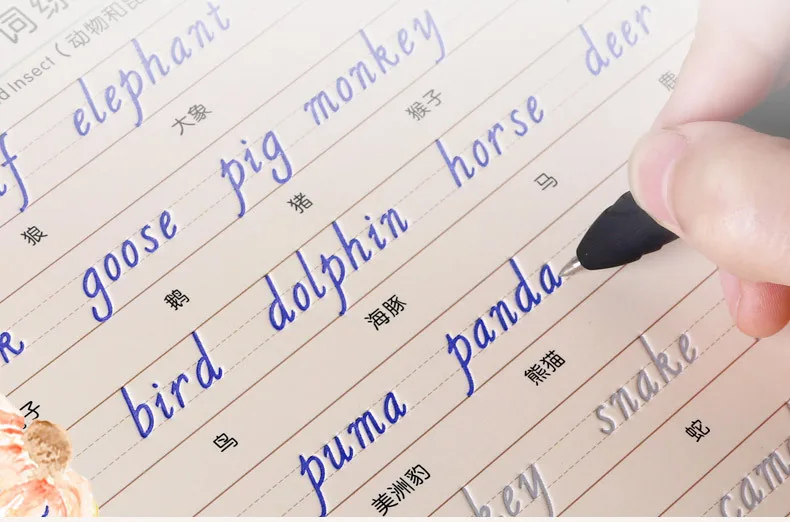 词
Insect（动物和
elephant
狼 大象
goose pig monkey
鹅 猪 猴子
bird dolphin horse deer
鸟 海豚 马 鹿
puma panda
美洲豹 熊猫
key snake
蛇